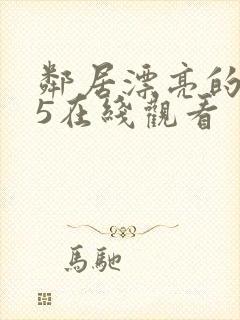 鄰居漂亮的
5在綫觀看
馬馳